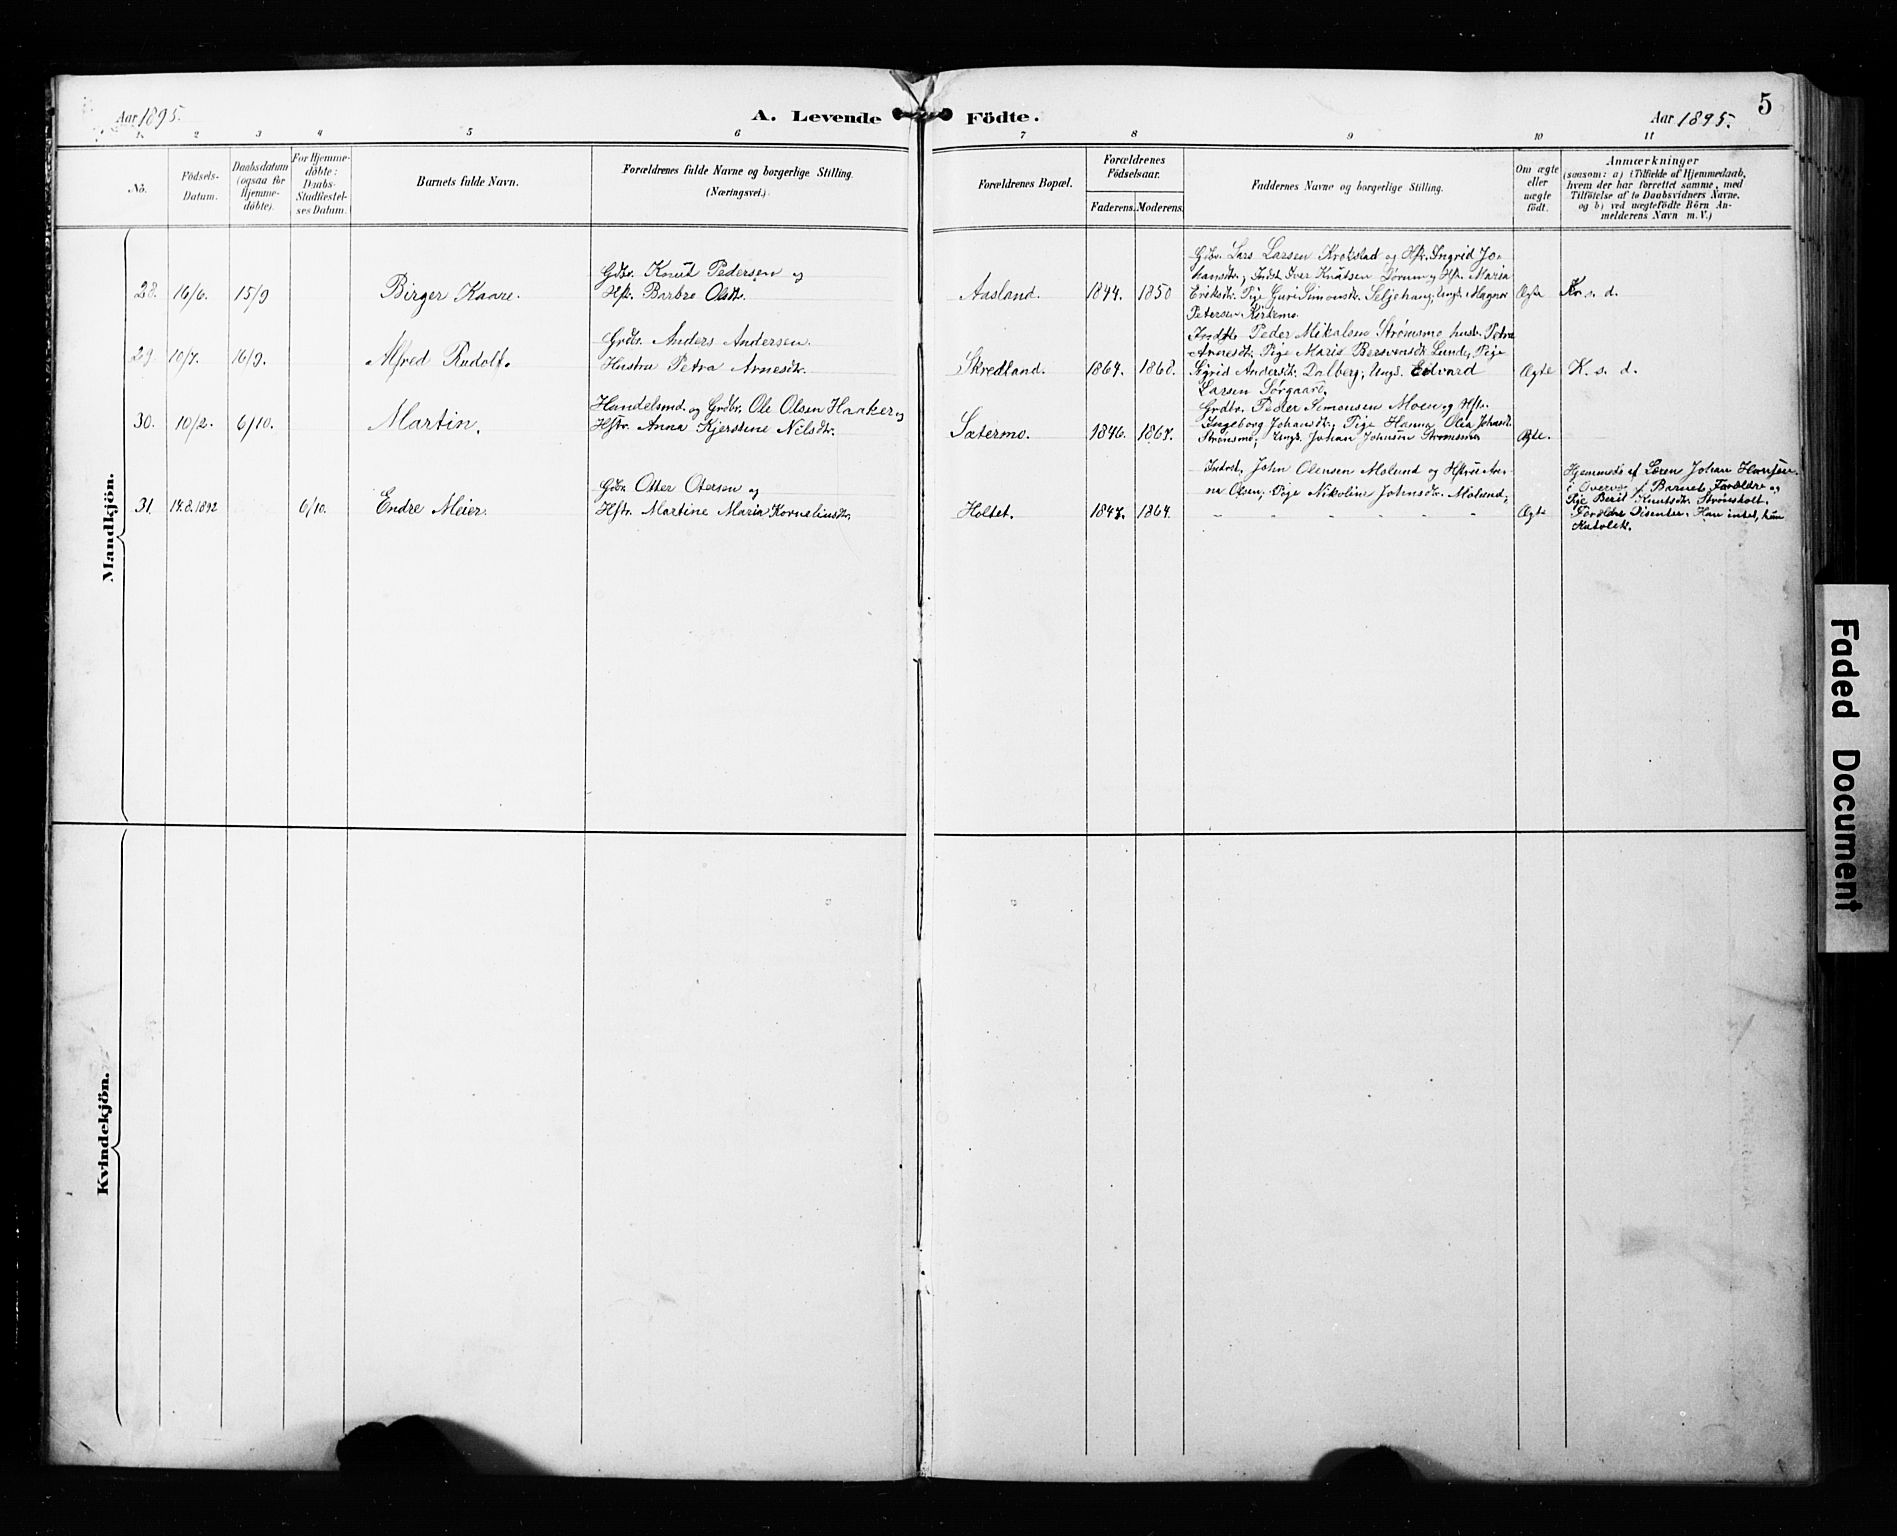 Aar 1895.
A. Levende Födte.
Aar 1895.
5
1. 2 3 4 5 6 7 8 9 10 11
No.
Födsels-
Datum.
Daabsdatum
(ogsaa for
Hjemme-
döbte).
For Hjemme-
döbte:
Daabs-
Stadfæstel-
ses Datum.
Barnets fulde Navn.
Forældrenes fulde Navne og borgerlige Stilling.
(Næringsvei.)
Forældrenes Bopæl.
Forældrenes
Födselsaar.
Faderens. Moderens.
Faddernes Navne og borgerlige Stilling.
Om ægte
eller
uægte
födt.
Anmærkninger
(saasom: a) i Tilfælde af Hjemmedaab,
hvem der har forrettet samme, med
Tilföielse af to Daabsvidners Navne,
og b) ved uægtefödte Börn An-
melderens Navn m. V.)
Mandkjön.
28. 16/6. 15/9
Birger Kaare.
Gdbr. Knut Pedersen og
Hstr. Barbro Olsdtr.
Aasland. 1844. 1850
Gdbr. Lars Larsen Krokstad og Hstr. Ingrid Jo-
hansdtr., Indst. Iver Knutsen og Hstr. Maria
Eriksdtr. Pige Guri Simonsdtr. Seljehaug, Ungk. Magnus
Petersen Kirkemo.
Ægte K. s. d.
29. 10/7. 16/9.
Alfred Rudolf.
Grdbr. Anders Andersen.
Hustru Petra Arnesdtr.
Skredland. 1864. 1868.
Indst. Peder Mikalsen Strømsmo, hustr. Petra
Arnesdtr. Pige Marie Bersvensdtr. Lund, Pige
Sigrid Andersdtr. Dalberg, Ungk. Edvard
Larsen Sørgaard.
Ægte K. s. d.
30. 10/2. 6/10.
Martin.
Handelsmd. og Grdbr. Ole Olsen Haaker og
Hstr. Anna Kjerstine Nilsdtr.
Sætermo. 1846. 1867.
Grdbr. Peder Simonsen Moen og Hstr.
Ingeborg Johansdtr., Pige Hanna Olea Johansdtr.
Strømsmo, Ungk. Johan Johnsen Strømsmo
Ægte.
31. 14.8.1892 6/10.
Endre Meier.
Gdbr. Otter Otersen og
Hstr. Martine Maria Korneliusdtr.
Holtet. 1847. 1864.
Indrst. John Olensen Molund og Hstru An-
ne Olsen, Pige Nikoline Johnsdtr. Molund,
" " " " " " "
Ægte
Hjemmed. af Læren Johan Hansen
i Overvær f Barnets Forældre og
Pige Berit Knutsdtr. Strømsholt.
Forældre Disenter. Han intet, hun
Katolik.
Kvindekjön.
Faded Document